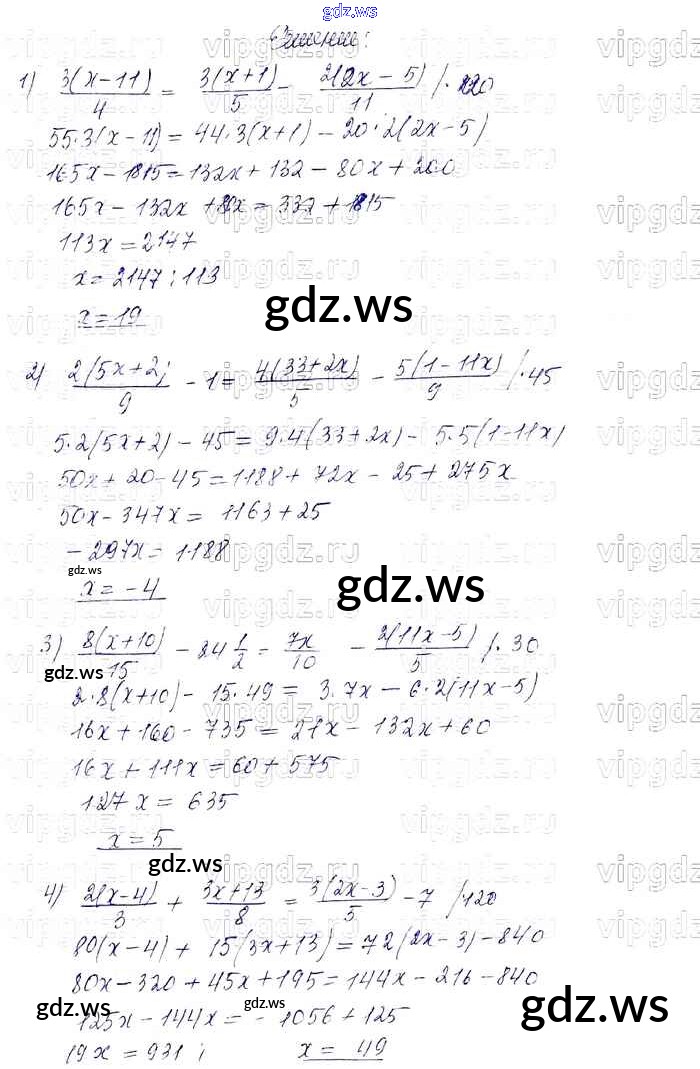 gdz.ws
Решение:
1) 3(x-11)/4 = 3(x+1)/5 - 2(2x-5)/11 /·220
55·3(x-11) = 44·3(x+1) - 20·2(2x-5)
165x - 1815 = 132x + 132 - 80x + 200
165x - 132x + 80x = 332 + 1815
113x = 2147
x = 2147 : 113
x = 19
gdz.ws
2) 2(5x+2)/9 - 1 = 4(33+2x)/5 - 5(1-11x)/9 /·45
5·2(5x+2) - 45 = 9·4(33+2x) - 5·5(1-11x)
50x + 20 - 45 = 1188 + 72x - 25 + 275x
50x - 347x = 1163 + 25
-297x = 1188
gdz.ws
x = -4
gdz.ws
3) 8(x+10)/15 - 24 1/2 = 7x/10 - 2(11x-5)/5 /·30
gdz.ws
2·8(x+10) - 15·49 = 3·7x - 6·2(11x-5)
16x + 160 - 735 = 21x - 132x + 60
16x + 111x = 60 + 575
127x = 635
x = 5
gdz.ws
4) 2(x-4)/3 + 3x+13/8 = 3(2x-3)/5 - 7 /120
80(x-4) + 15(3x+13) = 72(2x-3) - 840
80x - 320 + 45x + 195 = 144x - 216 - 840
gdz.ws
gdz.ws
gdz.ws
125x - 144x = -1056 + 125
19x = 931; x = 49